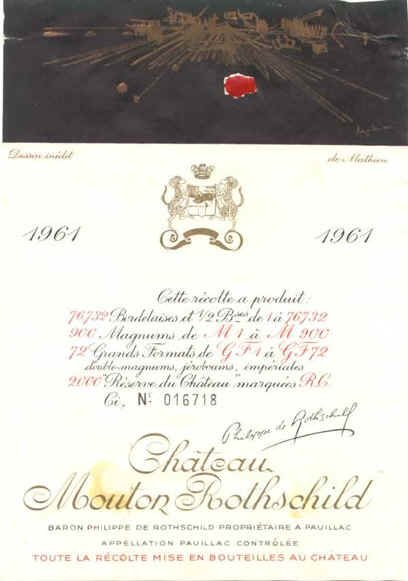 Dessin inédit de Mathieu
1961 1961
Cette récolte a produit:
76732 Bordelaises et 1/2 Bses de 1 à 76732
900 Magnums de M 1 à M 900
72 Grands Formats de GF1 à GF72
double-magnums, jéroboams, impériales
2000 "Réserve du Château" marquées R.C.
Ci, No 016718
Philippe de Rothschild
Château
Mouton Rothschild
BARON PHILIPPE DE ROTHSCHILD PROPRIÉTAIRE A PAUILLAC
APPELLATION PAUILLAC CONTRÔLÉE
TOUTE LA RÉCOLTE MISE EN BOUTEILLES AU CHÂTEAU